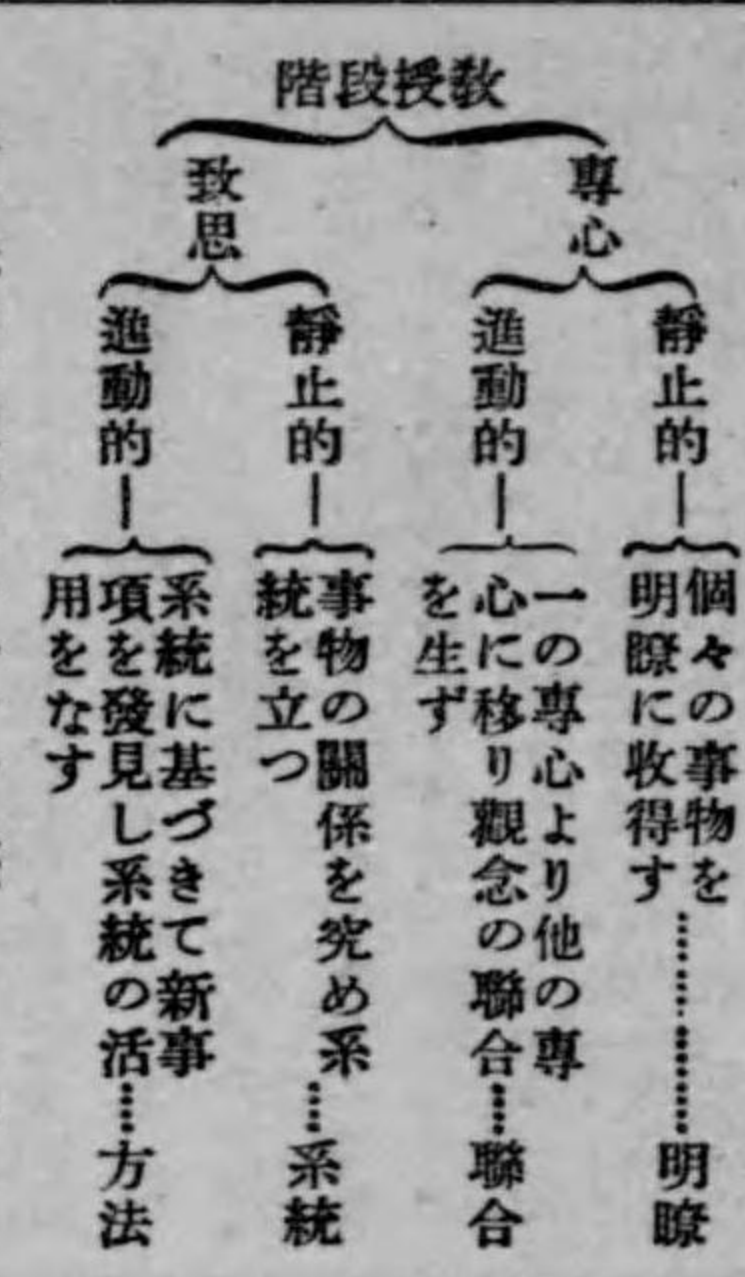 教授段階
專心
靜止的
個々の事物を
明瞭に收得す
明瞭
進動的
一の專心より他の專
心に移り觀念の聯合
を生ず
聯合
致思
靜止的
事物の關係を究め系
統を立つ
系統
進動的
系統に基づきて新事
項を發見し系統の活
用をなす
方法